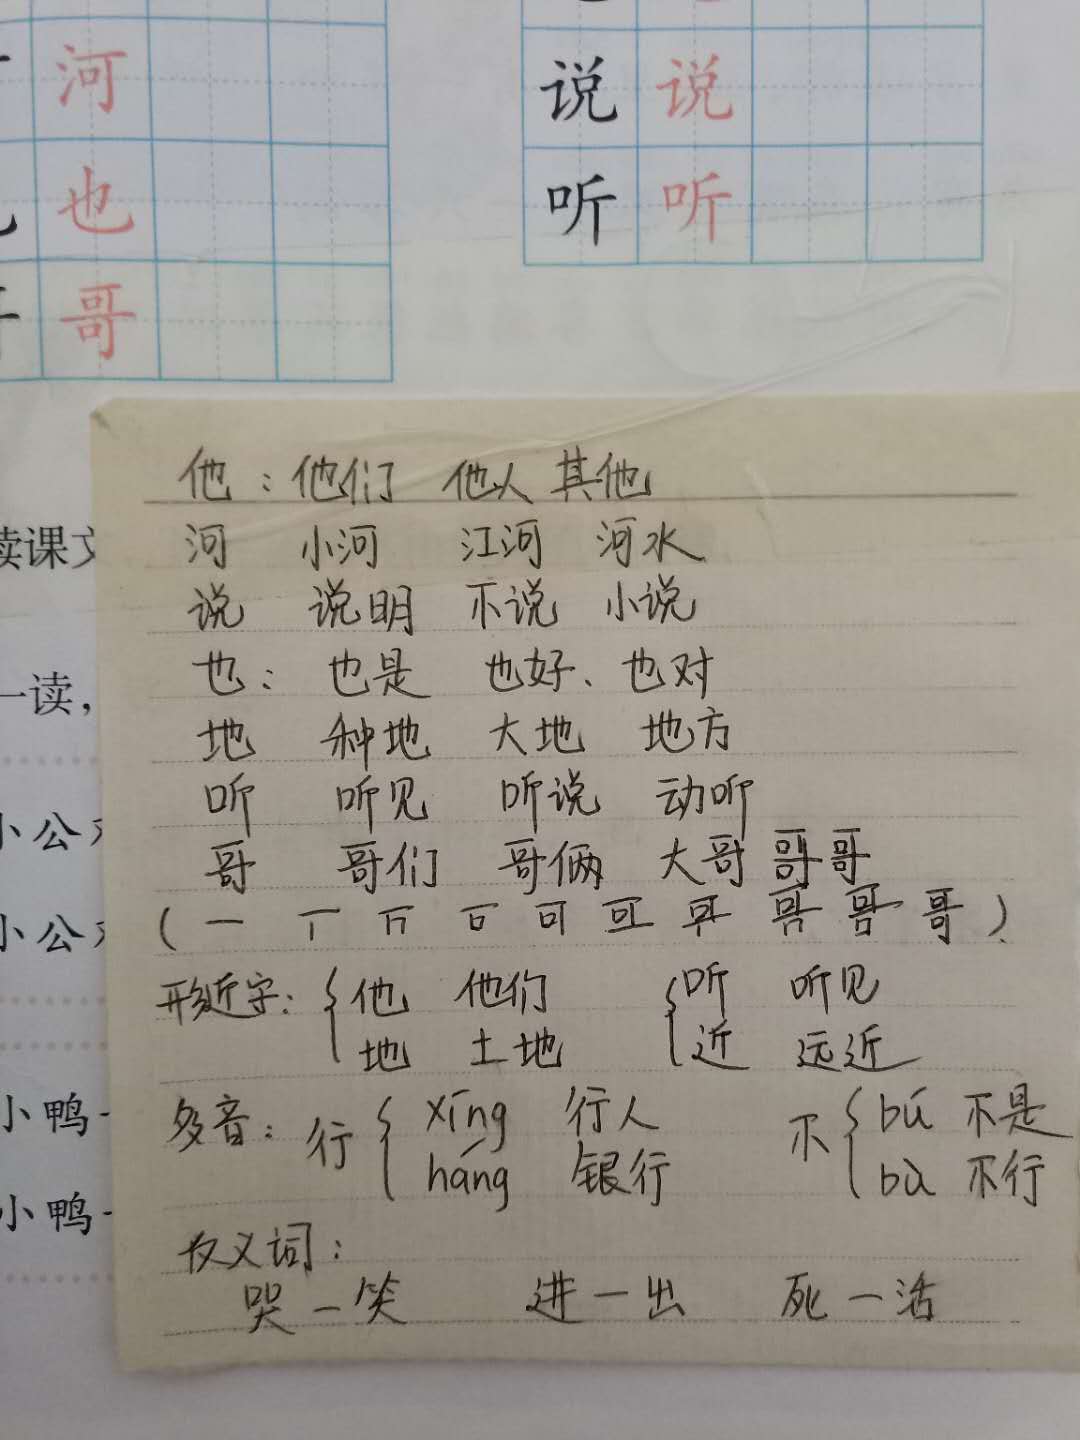 河
说 说
也
听 听
哥
他：他们 他人 其他
读课文
河 小河 江河 河水
说 说明 不说 小说
一读，
也：也是 也好、也对
地 种地 大地 地方
小公
听 听见 听说 动听
哥 哥们 哥俩 大哥 哥哥
小公
(一 丅 〒 𠮛 可 哥)
形近字：{他 他们 {听 听见
地 土地 近 远近
小鸭一
多音：行{xíng 行人 不{bú 不是
háng 银行 bù 不行
小鸭一
反义词：
哭一笑 进一出 死一活